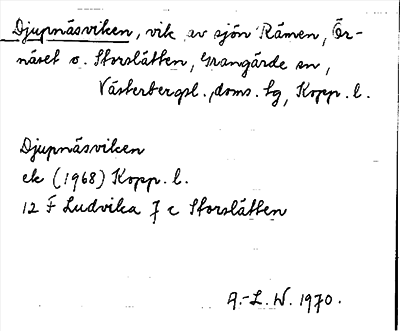 Djupnäsviken, vik av sjön Rämen, Ör-
näset o. Storslätten, Grangärde sn,
Västerbergsl. doms. tg, Kopp. l.
Djupnäsviken
ek (1968) Kopp. l.
12 F Ludvika 7 c Storslätten
A.-L. W. 1970.